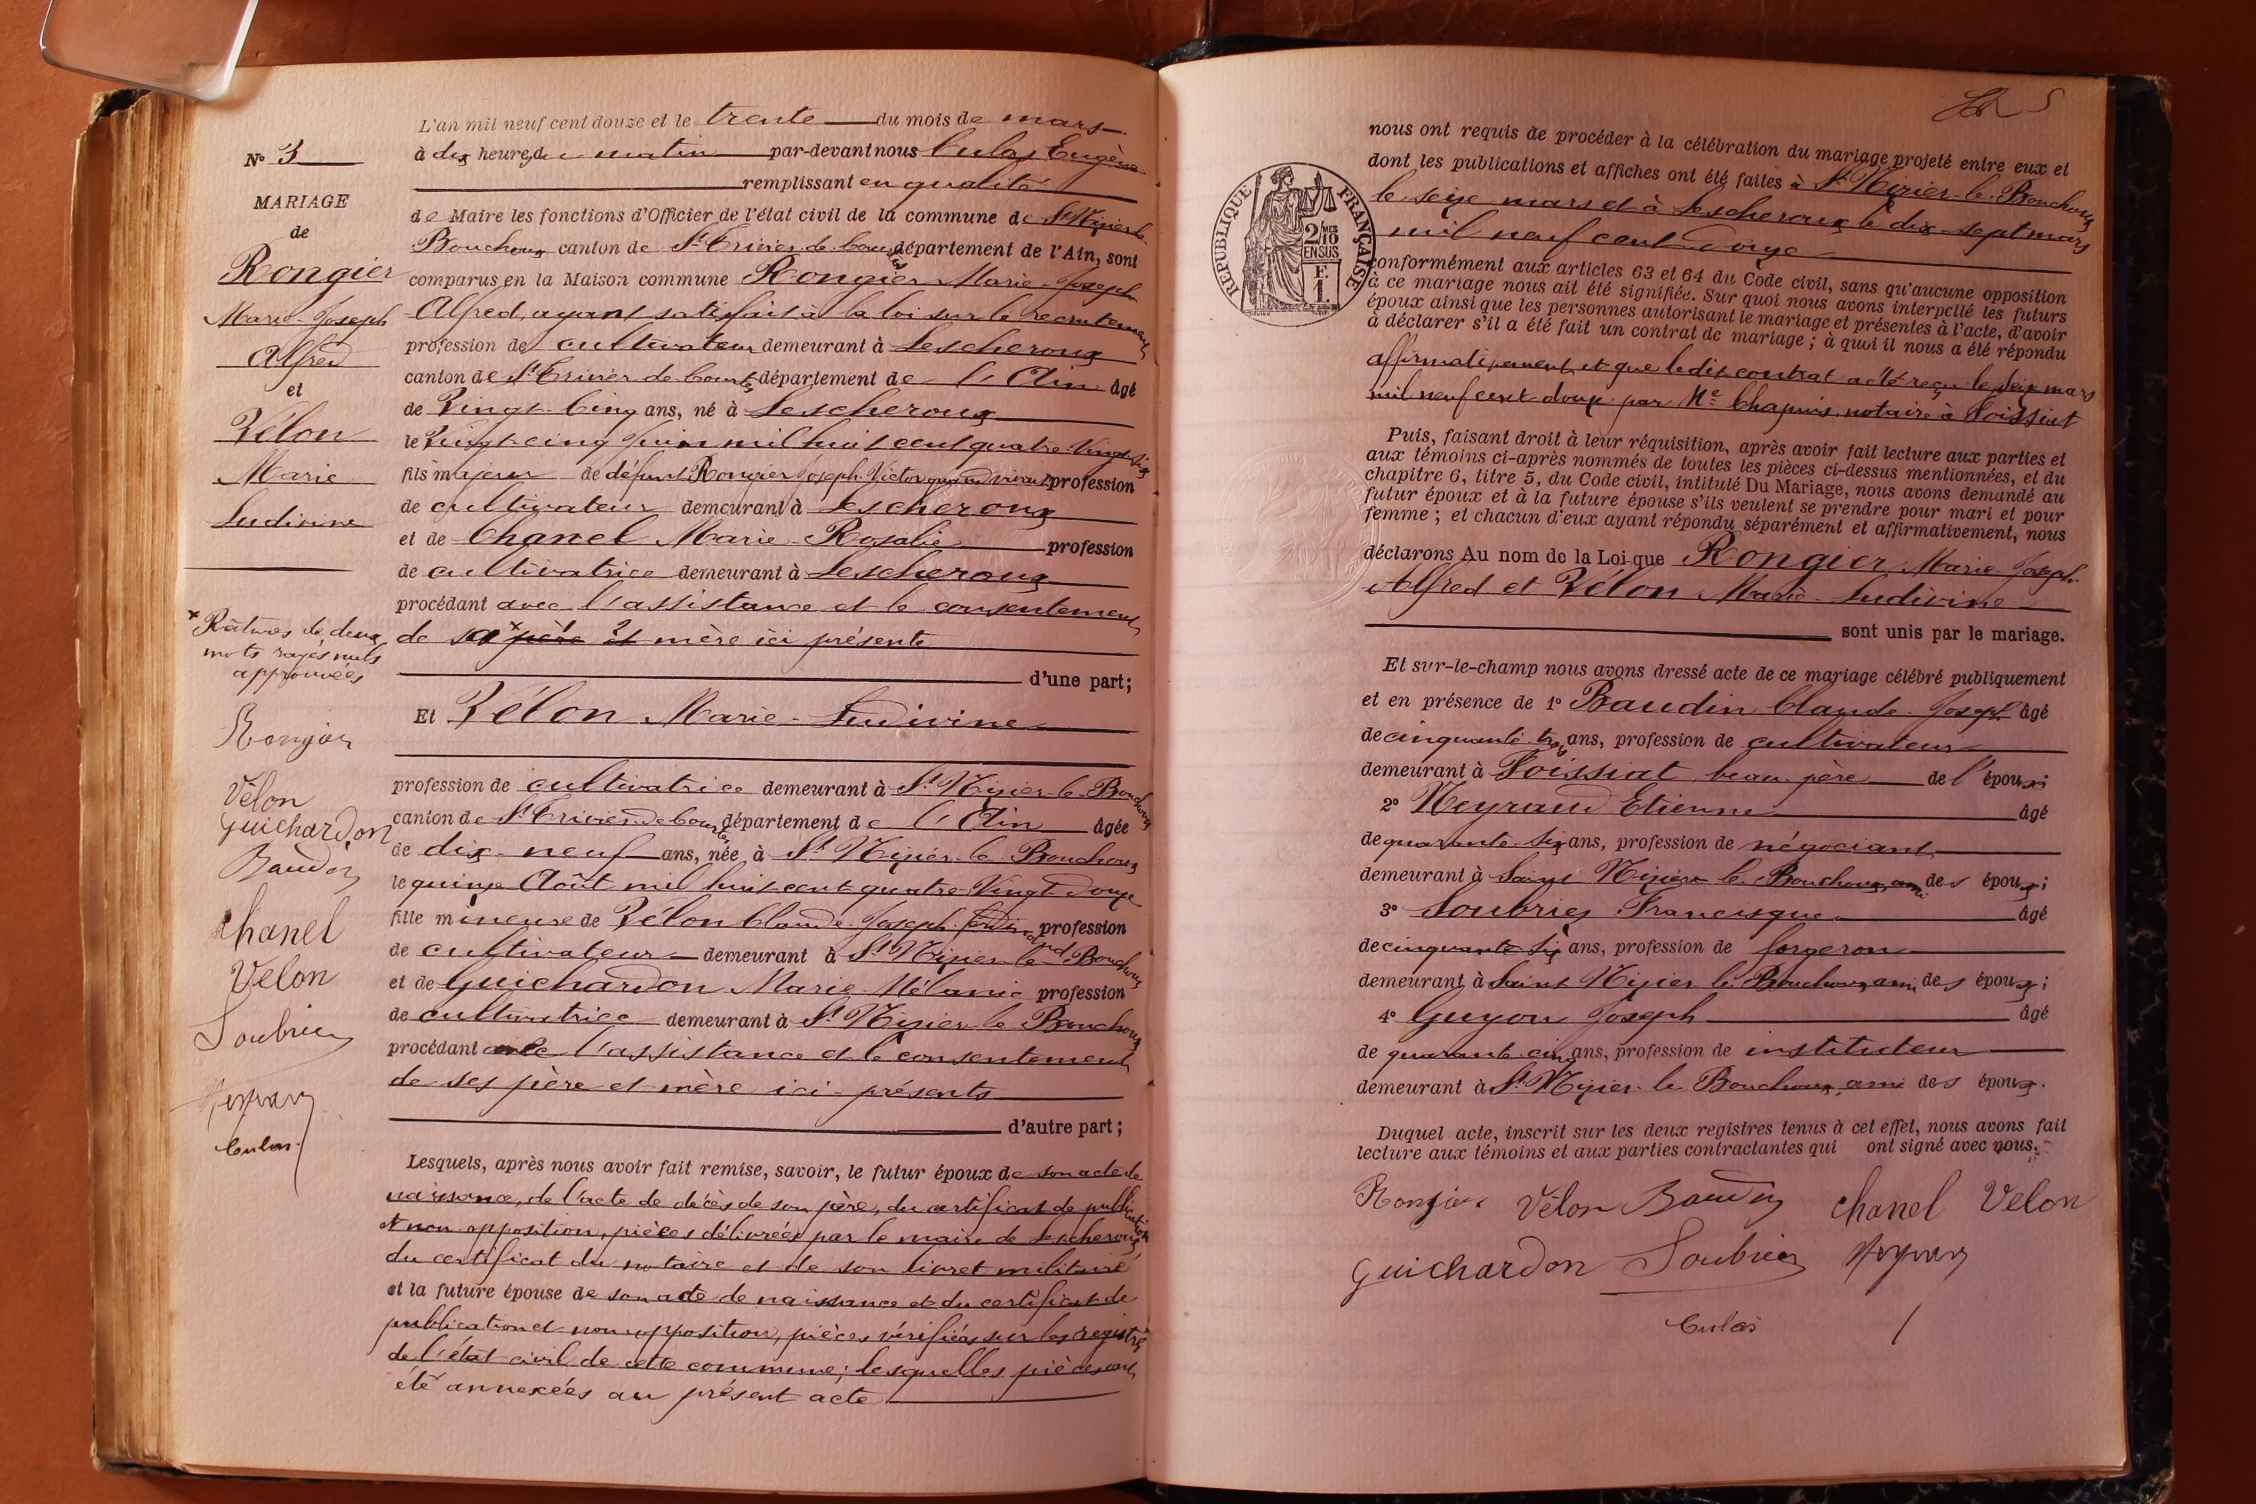 N° 3
MARIAGE
de
Rongier
Marie-Joseph
Alfred
et
Vélon
Marie
Ludivine
x Ratures de deux
mots rayés nuls
approuvées
Rongier
Vélon
Guichardon
Baudin
Chanel
Velon
Soubrier
Neyraud
Culas
L'an mil neuf cent douze et le trente du mois de mars
à dix heures du matin par-devant nous Culas Eugène
remplissant en qualité
de Maire les fonctions d'Officier de l'état civil de la commune de St Nizier le
Bouchoux canton de St Trivier de Courtes département de l'Ain, sont
comparus en la Maison commune Rongier Marie-Joseph
Alfred, ayant satisfait à la loi sur le recrutement
profession de cultivateur demeurant à Lescheroux
canton de St Trivier de Courtes département de l'Ain âgé
de Vingt-Cinq ans, né à Lescheroux
le Vingt-cinq Juin mil huit cent quatre-Vingt-six
fils majeur de défunt Rongier Joseph-Victor quand vivait profession
de cultivateur demeurant à Lescheroux
et de Chanel Marie-Rosalie profession
de cultivatrice demeurant à Lescheroux
procédant avec l'assistance et le consentement
de sa x père et mère ici présente
d'une part;
Et Vélon Marie-Ludivine
profession de cultivatrice demeurant à St Nizier-le-Bouchoux
canton de St Trivier de Courtes département de l'Ain âgée
de dix-neuf ans, née à St Nizier-le-Bouchoux
le quinze Août mil huit cent quatre-Vingt-douze
fille mineure de Vélon Claude-Joseph-Ferdinand profession
de cultivateur demeurant à St Nizier-le-Bouchoux
et de Guichardon Marie-Mélanie profession
de cultivatrice demeurant à St Nizier-le-Bouchoux
procédant avec l'assistance et le consentement
de ses père et mère ici-présents
d'autre part;
Lesquels, après nous avoir fait remise, savoir, le futur époux de son acte de
naissance, de l'acte de décès de son père, du certificat de publication
et non opposition, pièces délivrées par le maire de Lescheroux
du certificat du notaire et de son livret militaire
et la future épouse de son acte de naissance et du certificat de
publication et non opposition, pièces vérifiées sur les registres
de l'état civil de cette commune; lesquelles pièces ont
été annexées au présent acte
5
REPUBLIQUE FRANÇAISE
2/10
EN SUS
F.
1.
nous ont requis de procéder à la célébration du mariage projeté entre eux et
dont les publications et affiches ont été faites à St Nizier-le-Bouchoux
le seize mars et à Lescheroux le dix-sept mars
mil neuf cent douze
conformément aux articles 63 et 64 du Code civil, sans qu'aucune opposition
à ce mariage nous ait été signifiée. Sur quoi nous avons interpellé les futurs
époux ainsi que les personnes autorisant le mariage et présentes à l'acte, d'avoir
à déclarer s'il a été fait un contrat de mariage; à quoi il nous a été répondu
affirmativement et que le dit contrat a été reçu le seize mars
mil neuf cent douze par Me Chapuis, notaire à Foissiat
Puis, faisant droit à leur réquisition, après avoir fait lecture aux parties et
aux témoins ci-après nommés de toutes les pièces ci-dessus mentionnées, et du
chapitre 6, titre 5, du Code civil, intitulé Du Mariage, nous avons demandé au
futur époux et à la future épouse s'ils veulent se prendre pour mari et pour
femme; et chacun d'eux ayant répondu séparément et affirmativement, nous
déclarons Au nom de la Loi que Rongier Marie-Joseph-
Alfred et Vélon Marie-Ludivine
sont unis par le mariage.
Et sur-le-champ nous avons dressé acte de ce mariage célébré publiquement
et en présence de 1° Baudin Claude-Joseph âgé
de cinquante trois ans, profession de cultivateur
demeurant à Foissiat beau-père de l'époux;
2° Neyraud Etienne âgé
de quarante-six ans, profession de négociant
demeurant à Saint Nizier le Bouchoux, ami des époux;
3° Soubrier Francisque âgé
de cinquante six ans, profession de forgeron
demeurant à Saint Nizier le Bouchoux, ami des époux;
4° Guyon Joseph âgé
de quarante-cinq ans, profession de instituteur
demeurant à St Nizier le Bouchoux, ami des époux.
Duquel acte, inscrit sur les deux registres tenus à cet effet, nous avons fait
lecture aux témoins et aux parties contractantes qui ont signé avec nous.
Rongier Vélon Baudin Chanel Velon
Guichardon Soubrier Neyraud
Culas